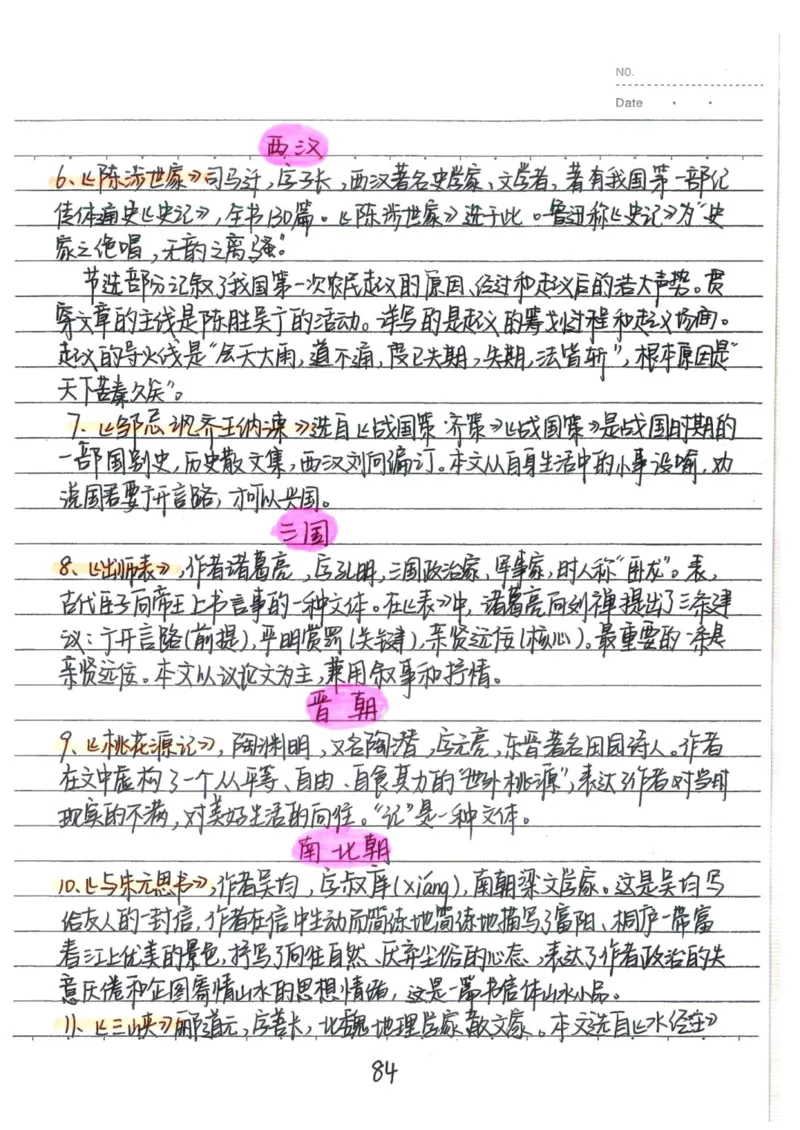 NO.
Date
西汉
6、《陈涉世家》司马迁,字子长,西汉著名史学家、文学者,著有我国第一部纪
传体通史《史记》,全书130篇。《陈涉世家》选于此。鲁迅称《史记》为“史
家之绝唱,无韵之离骚”。
节选部分记叙了我国第一次农民起义的原因、经过和起义后的浩大声势。贯
穿文章的主线是陈胜吴广的活动。详写的是起义的筹划过程和起义场面。
起义的导火线是“会天大雨,道不通,度已失期,失期,法皆斩”,根本原因是“
天下苦秦久矣”。
7、《邹忌讽齐王纳谏》选自《战国策·齐策》《战国策》是战国时期的
一部国别史,历史散文集,西汉刘向编订。本文从自身生活中的小事设喻,劝
说国君要广开言路,才可以兴国。
三国
8、《出师表》,作者诸葛亮,字孔明,三国政治家、军事家,时人称“卧龙”。表,
古代臣子向帝王上书言事的一种文体。在《表》中,诸葛亮向刘禅提出了三条建
议:广开言路(前提),平明赏罚(关键),亲贤远佞(核心)。最重要的一条是
亲贤远佞。本文以议论文为主,兼用叙事和抒情。
晋朝
9、《桃花源记》,陶渊明,又名陶潜,字元亮,东晋著名田园诗人。作者
在文中虚构了一个人人平等、自由、自食其力的“世外桃源”,表达了作者对当时
现实的不满,对美好生活的向往。“记”是一种文体。
南北朝
10、《与朱元思书》,作者吴均,字叔庠(xiáng),南朝梁文学家。这是吴均写
给友人的一封信,作者在信中生动而简练地简练地描写了富阳、桐庐一带富
春江上优美的景色,抒写了向往自然、厌弃尘俗的心态,表达了作者政治的失
意厌倦和企图寄情山水的思想情绪,这是一篇书信体山水小品。
11、《三峡》郦道元,字善长,北魏地理学家散文家。本文选自《水经注》
84